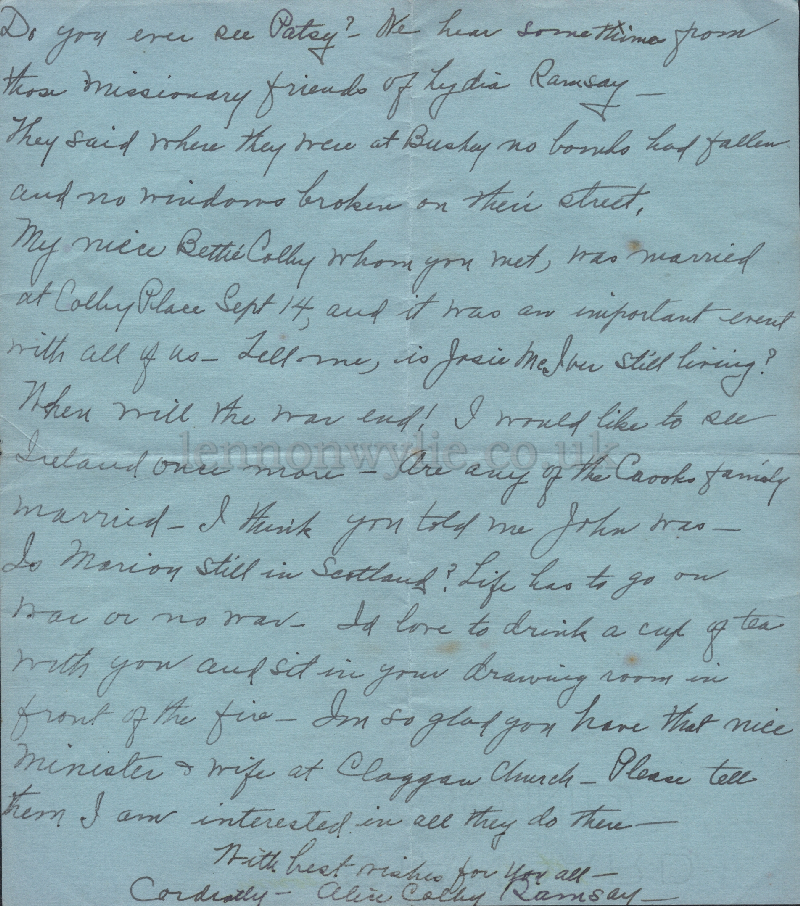 Do you ever see Patsy? - We hear sometime from
those missionary friends of Lydia Ramsay -
They said where they were at Bushey no bombs had fallen
and no windows broken on their street.
My niece Bettie Colby whom you met, was married
at Colby Place Sept 14, and it was an important event
with all of us - Tell me, is Josie McIver still living?
When will the war end! I would like to see
lennonwylie.co.uk
Ireland once more - Are any of the Crooks family
married - I think you told me John was -
Is Marion still in Scotland? Life has to go on
war or no war - Id love to drink a cup of tea
with you and sit in your drawing room in
front of the fire - Im so glad you have that nice
Minister & wife at Claggan Church - Please tell
them I am interested in all they do there -
With best wishes for you all -
Cordially - Alice Colby Ramsay -